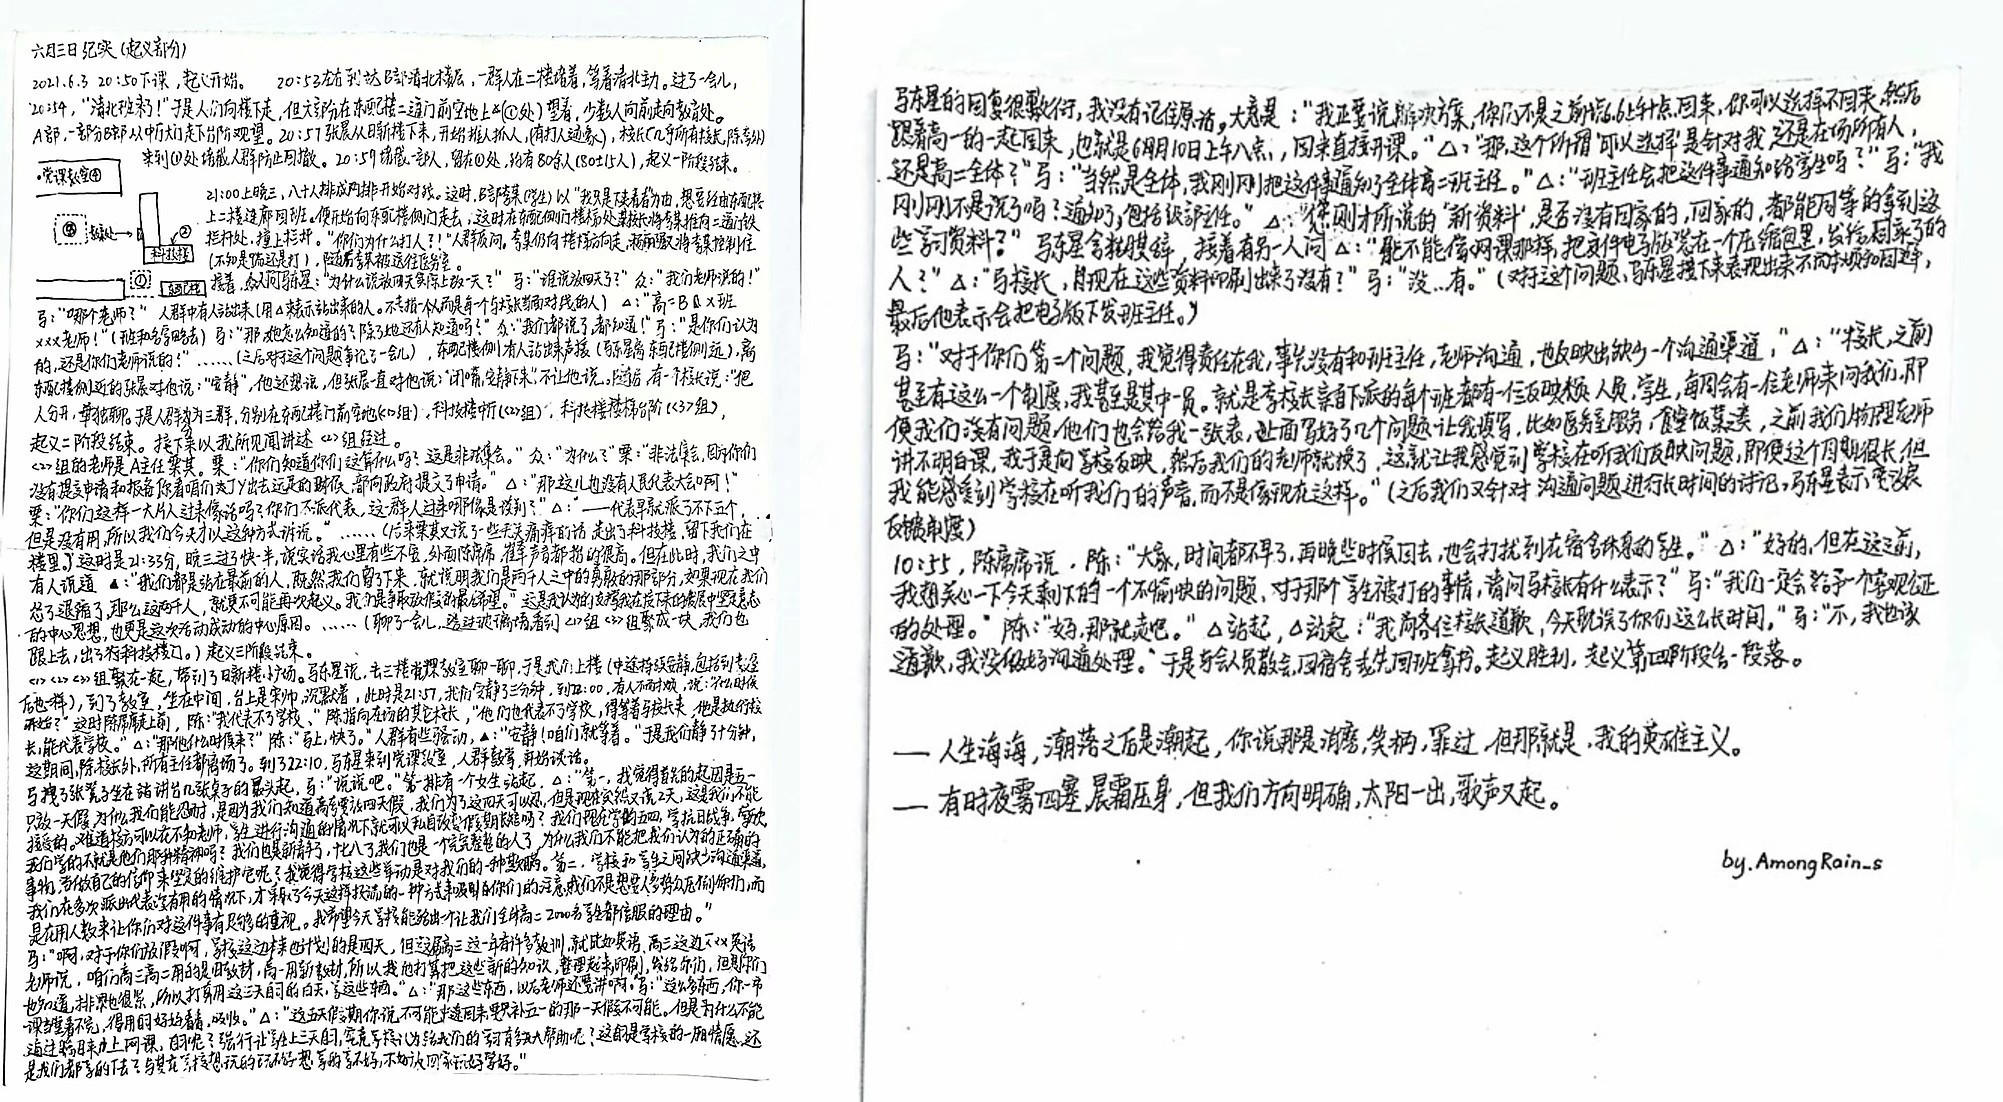 六月三日纪实(起义部分)
2021.6.3 20:50下课,起义开始。 20:53左右到达B部清北楼层,一群人在二楼堵着,等着清北主力。过了一会儿,
20:54,“清北班来了!”于是人们向楼下走,但大部分在东配楼二道门前空地上(①处)望着,少数人向前走向教育处。
A部,一部分B部从中厅大门走下台阶观望。20:57张晨从日新楼下来,开始推人抓人,(有打人迹象),校长(几乎所有校长,除李外)
来到①处堵截人群防止回撤。20:59堵截一部人,留在①处,约有80余人(80±15人),起义一阶段结束。
·党课教室④
21:00上晚三,八十人排成两排开始对线。这时,B部李某(学生)以“我只是来看看”为由,想要经由东配楼
上二楼连廊回班。便开始向东配楼侧门走去,这时在东配侧门楼梯处某校长将李某推向二道门铁
③ 教育处→ ②
栏杆处,撞上栏杆。“你们为什么打人?!”人群质问,李某仍向楼梯方向走,
科技楼
(不知是踹还是打),随后李某被送往医务室。
① 东配楼
接着,众人问马东星:“为什么说放四天实际上放一天?” 马:“谁说放四天了?” 众:“我们老师说的!”
马:“哪个老师?” 人群中有人站出来(用△来表示站出来的人。不专指一个人而是每一个与校长当面对线的人) △:“高二B部X班
xxx老师!”(班和名字略去) 马:“那她怎么知道的?除了她还有人知道吗?” 众:“我们都说了,都知道!” 马:“是你们认为
的,还是你们老师说的!” ……(之后对这个问题争论了一会儿),东配楼侧有人站出来声援(马东星离东配楼侧远),离
东配楼侧近的张晨对他说:“安静”,他还想说,但张晨一直对他说:“闭嘴,安静下来”不让他说。随后,有一个校长说:“把
人分开,单独聊。于是人群分为三群,分别在东配楼门前空地(<1>组),科技楼中厅(<2>组),科技楼楼梯台阶(<3>组),
起义二阶段结束。接下来以我所见闻讲述<2>组经过。
<2>组的老师是A主任栗某。栗:“你们知道你们这算什么吗?这是非法集会。” 众:“为什么?”栗:“非法集会,因为你们
没有提交申请和报备,你看咱们去行y出去远足的时候,都向政府提交了申请。” △:“那这儿也没有人民代表大会啊!”
栗:“你们这样一大片人过来像话吗?你们不派代表,这一群人过来哪像是谈判?” △:“——代表早就派了不下五个,
但是没有用,所以我们今天才以这种方式诉说。” ……(后来栗某又说了一些无关痛痒的话,走出了科技楼,留下我们在
楼里。)这时是21:33分,晚三过了快一半,说实话我心里有些不安,外面陈席席,崔军声音都提的很高。但在此时,我们之中
有人说道 ▲:“我们都是站在最前的人,既然我们留下来,就说明我们是两千人之中的勇敢的那部分,如果现在我们
怂了,退缩了,那么这两千人,就更不可能再次起义。我们是争取放假的最后希望。” 这是我认为的支撑我在接下来的几个小时中坚定意志
的中心思想,也更是这次活动成功的中心原因。……(聊了一会儿,透过玻璃墙看到<1>组<3>组聚成一块,我们也
跟上去,出了科技楼门。) 起义三阶段结束。
<1><2><3>组聚在一起,挪到了日新楼小广场。马东星说,去三楼党课教室聊一聊,于是我们上楼(中途持续安静,包括到教室
后也一样),到了教室,坐在中间,台上是宋帅,沉默着,此时是21:57,我们安静了三分钟,到22:00,有人不耐烦,说:“什么时候
开始?” 这时陈席席走上前,陈:“我代表不了学校,”陈指向在场的其它校长,“他们也代表不了学校,得等着马校长来,他是执行校
长,能代表学校。” △:“那他什么时候来?” 陈:“马上,快了。”人群有些骚动,▲:“安静!咱们就等着。”于是我们静了十分钟,
这期间,除校长外,所有主任都离场了。到了22:10,马东星来到党课教室,人群鼓掌,开始谈话。
马拽了张凳子坐在站讲台几张桌子的最头起,马:“说说吧。”第一排有一个女生站起,△:“第一,我觉得首先的起因是五一
只放一天假,为什么我们能忍耐,是因为我们知道高考要放四天假,我们为了这四天可以忍,但是现在突然又说2天,这是我们不能
接受的。难道校方可以在不和老师,学生进行沟通的情况下就可以私自改变假期长短吗?我们现在学的五四,学抗日战争,
我们学的不就是他们那种精神吗?我们也是新青年,十七八了,我们也是一个完完整整的人了,为什么我们不能把我们认为的正确的
事物,当做自己的信仰来坚定的维护它呢?我觉得学校这些举动是对我们的一种欺瞒。第二,学校和学生之间缺少沟通渠道,
我们在多次派出代表没有用的情况下,才采取了今天这样极端的一种方式来吸引你们的注意,我们不是想要人多势众压倒你们,而
是在用人数来让你们对这件事有足够的重视。我希望今天学校能给出一个让我们全体高二2000名学生都信服的理由。”
马:“啊,对于你们放假啊,学校这边本来也计划的是四天,但这届高三这一年有许多教训,就比如英语,高三这边xxx英语
老师说,咱们高三高二用的是旧教材,高一用新教材,所以我们打算把这些新的知识,整理起来,印刷,发给你们,但是你们
也知道,排课也很紧,所以打算用这三天的白天,学这些东西。” △:“那这些东西,以后老师还要讲啊。”马:“这么多东西,你一节
课当堂看不完,得用时间好好看看,吸收。” △:“这五天假期你说不可能连回来要求补五一的那一天假不可能。但是为什么不能
通过端日来力上网课,自习呢?强行让学生上三天自习,究竟学校认为给我们的学习有多大帮助呢?这究竟是学校的一厢情愿,还
是我们都学的下去?与其在学校想玩的玩不好想学的学不好,不如放回家玩好学好。”
马东星的回复很敷衍,我没有记住原话,大意是:“我正要说解决方案,你们不是之前说6.6上午点回来,你可以选择不回来,然后
跟着高一的一起回来,也就是6月10日上午八点,回来直接开课。” △:“那,这个所谓‘可以选择’是针对我,还是在场所有人,
还是高二全体?” 马:“当然是全体,我刚刚把这件事通知了全体高二班主任。” △:“班主任会把这件事通知给学生吗?” 马:“我
刚刚不是说了吗?通知了,包括级部主任。” △:“您刚才所说的‘新资料’,是否没有回家的,回家的,都能同等的拿到这
些学习资料?” 马东星含糊其辞,接着有另一人问 △:“能不能像网课那样,把文件电子版装在一个压缩包里,发给回家了的
人?” △:“马校长,目现在这些资料印刷出来了没有?” 马:“没...有。”(对于这个问题,马东星接下来表现出来不耐烦和回避,
最后他表示会把电子版下发班主任。)
马:“对于你们第二个问题,我觉得责任在我,事先没有和班主任,老师沟通,也反映出缺少一个沟通渠道,” △:“校长,之前
甚至有这么一个制度,我甚至是其中一员。就是李校长亲自下派的每个班都有一位反映问题人员,学生,每周会有一位老师来问我们,即
便我们没有问题,他们也会给我一张表,上面写好了几个问题让我填写,比如医务室服务,食堂饭菜之类,之前我们物理老师
讲不明白课,我于是向学校反映,然后我们的老师就换了,这就让我感觉到学校在听我们反映问题,即便这个周期很长,但
我能感受到学校在听我们的声音,而不是像现在这样。”(之后我们又针对沟通问题进行长时间的讨论,马东星表示要发展
反馈制度)
10:55,陈席席说,陈:“大家,时间都不早了,再晚些时候回去,也会打扰到在宿舍休息的学生。” △:“好的,但在这之前,
我想关心一下今天剩下的一个不愉快的问题,对于那个学生被打的事情,请问马校长有什么表示?” 马:“我们一定会给予一个客观公正
的处理。” 陈:“好,那就走吧。” △站起,△站起:“我向各位校长道歉,今天耽误了你们这么长时间。” 马:“不,我也该
道歉,我没做好沟通处理。” 于是与会人员散会,回宿舍或先回班拿书。起义胜利,起义第四阶段告一段落。
— 人生海海,潮落之后是潮起,你说那是消磨,笑柄,罪过,但那就是,我的英雄主义。
— 有时夜雾四塞,晨霜压身,但我们方向明确,太阳一出,歌声又起。
by.AmongRain_s